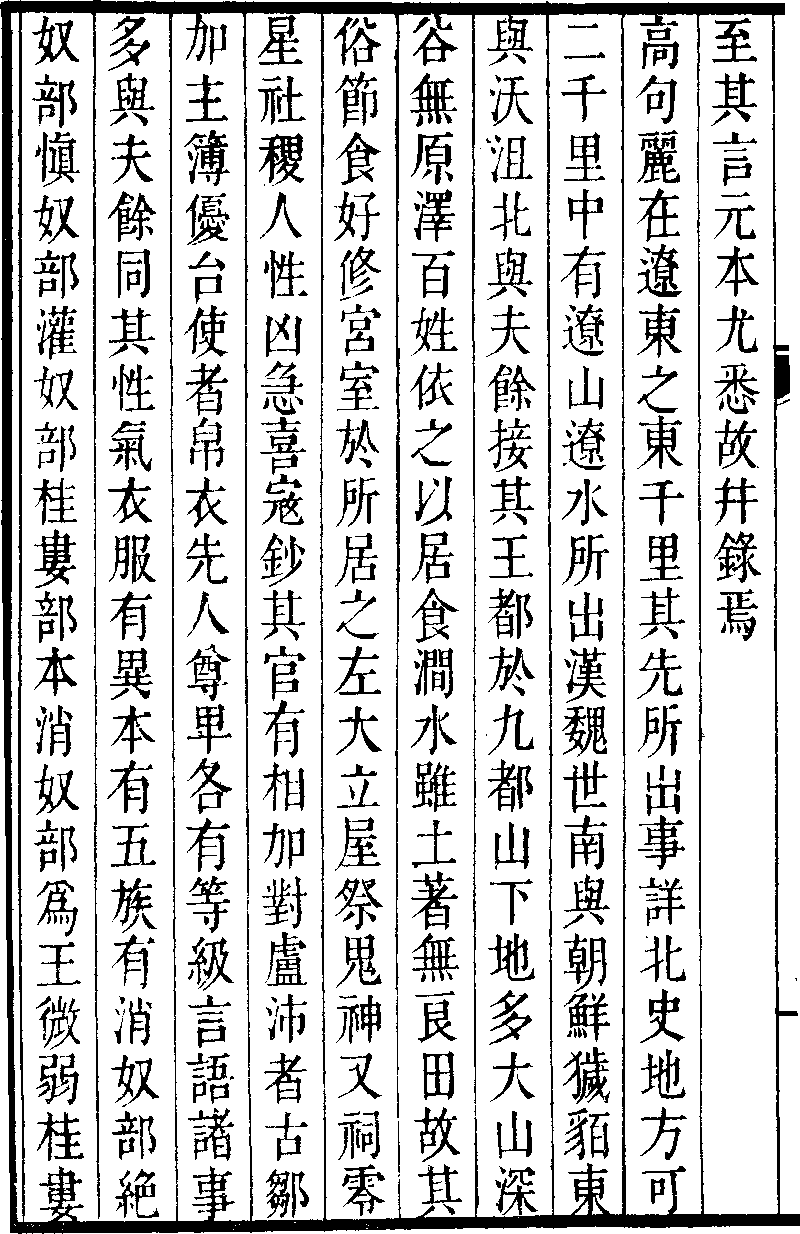 至其言元本尤悉故幷錄焉
高句麗在遼東之東千里其先所出事詳北史地方可
二千里中有遼山遼水所出漢魏世南與朝鮮獩貊東
與沃沮北與夫餘接其王都於九都山下地多大山深
谷無原澤百姓依之以居食澗水雖土著無良田故其
俗節食好修宮室於所居之左大立屋祭鬼神又祠零
星社稷人性凶急喜寇鈔其官有相加對盧沛者古鄒
加主簿優台使者帛衣先人尊卑各有等級言語諸事
多與夫餘同其性氣衣服有異本有五族有消奴部絶
奴部愼奴部灌奴部桂婁部本消奴部爲王微弱桂婁